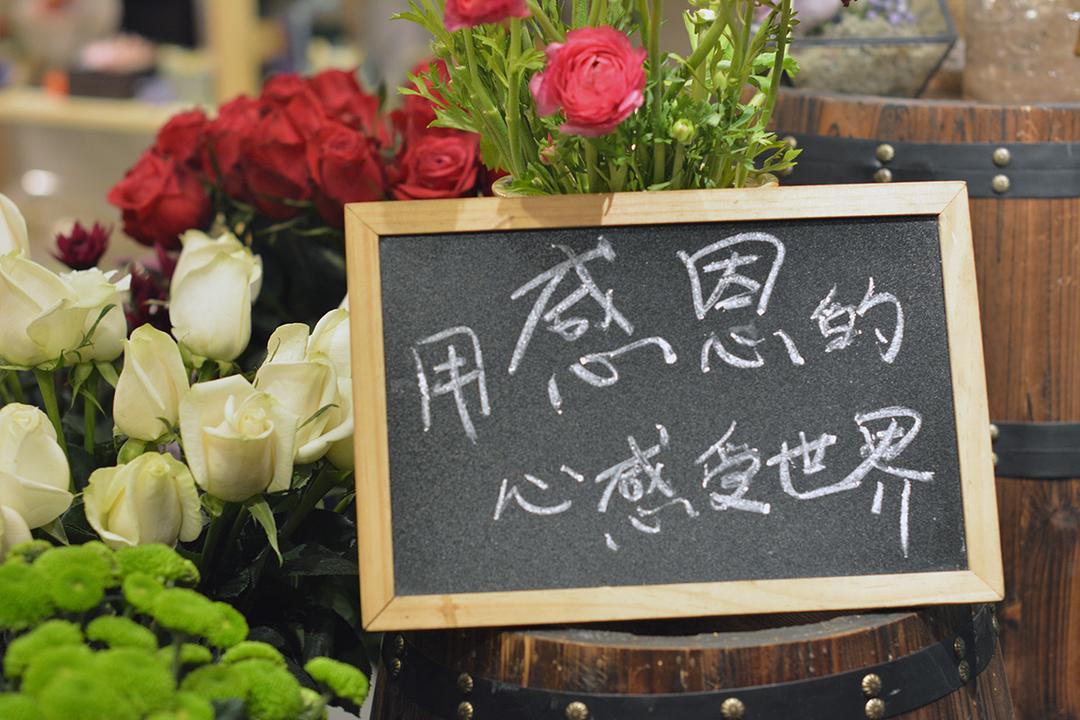 用感恩的
心感受世界